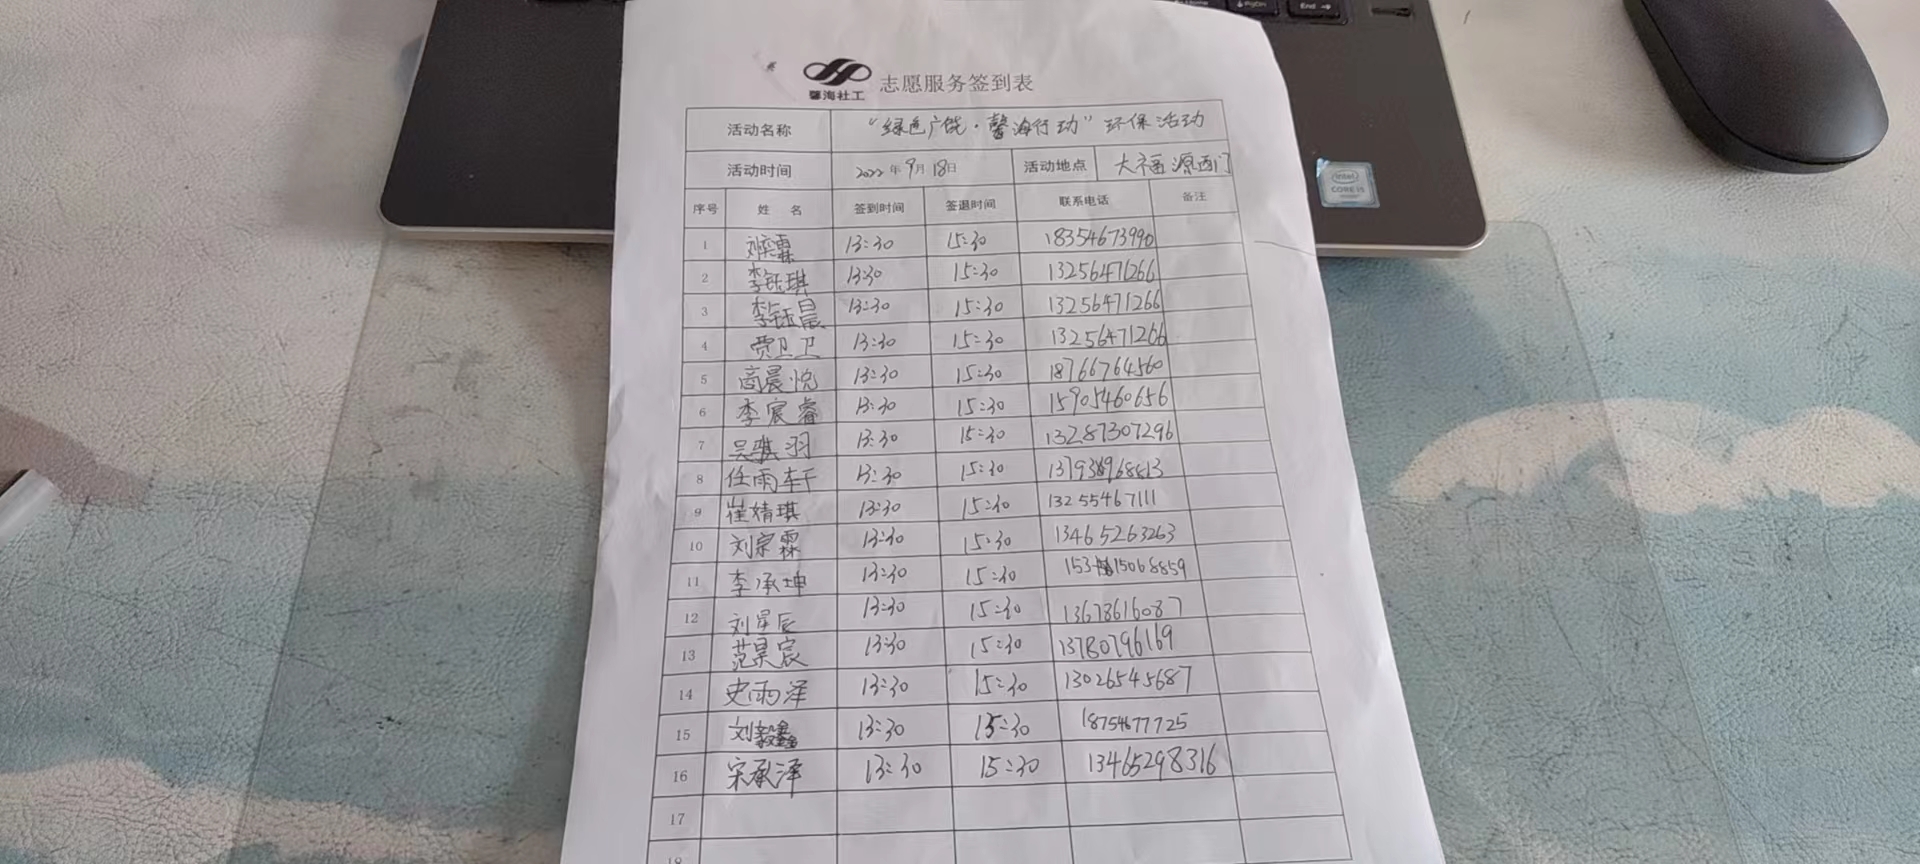 PgDn
End
馨海社工
志愿服务签到表
活动名称 "绿色广饶·馨海行动"环保活动
活动时间 2022年9月18日 活动地点 大福源西门
序号 姓 名 签到时间 签退时间 联系电话 备注
1 刘奕霖 13:30 15:30 18354673990
2 李钰琪 13:30 15:30 13256471266
3 李钰晨 13:30 15:30 13256471266
4 贾卫卫 13:30 15:30 13256471266
5 商晨悦 13:30 15:30 18766764560
6 李宸睿 13:30 15:30 15905460656
7 吴骐羽 13:30 15:30 13287307296
8 任雨轩 13:30 15:30
9 崔婧琪 13:30 15:30 13255467111
10 刘宗霖 13:30 15:30 13465263263
11 李承坤 13:30 15:30 15315068859
12 刘星辰 13:30 15:30 13678616087
13 范昊宸 13:30 15:30 13780796169
14 史雨泽 13:30 15:30 13026545687
15 刘毅鑫 13:30 15:30 18754677725
16 宋承泽 13:30 15:30 13465298316
17
18
intel
CORE i5